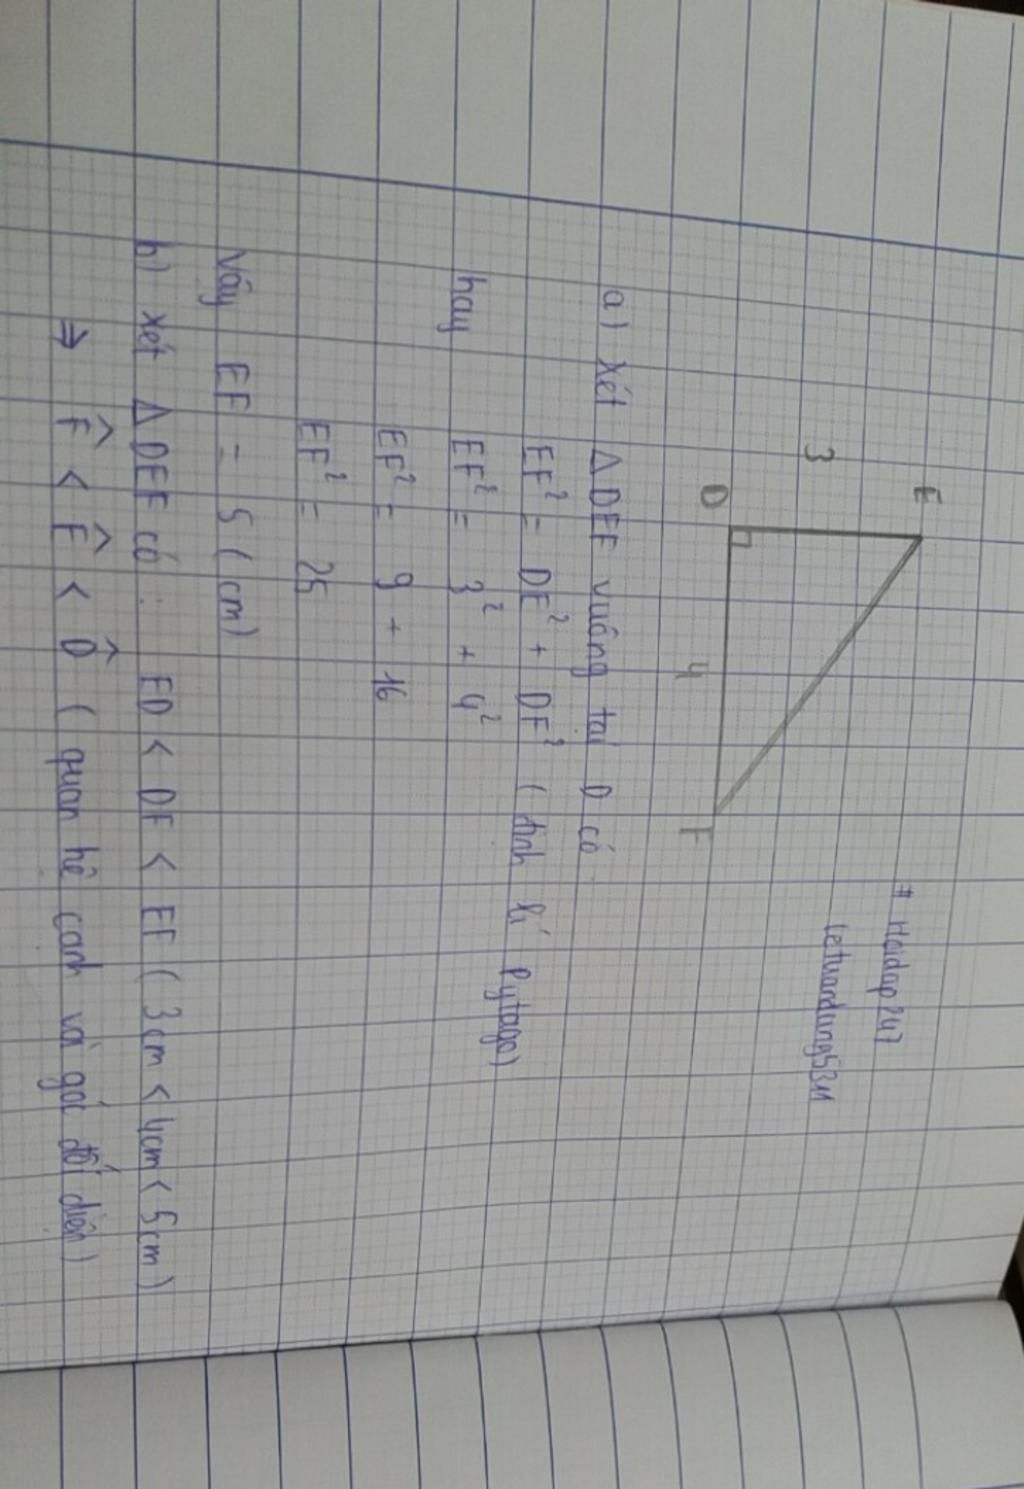 # Hoidap247
letuandung5311
E
3
D
4
F
a) Xét Δ DEF vuông tại D có
EF² = DE² + DF² ( định lí Pytago)
hay EF² = 3² + 4²
EF² = 9 + 16
EF² = 25
Vậy EF = 5 (cm)
b) Xét Δ DEF có: ED < DF < EF ( 3cm < 4cm < 5cm )
⇒ F̂ < Ê < D̂ ( quan hệ cạnh và góc đối diện)